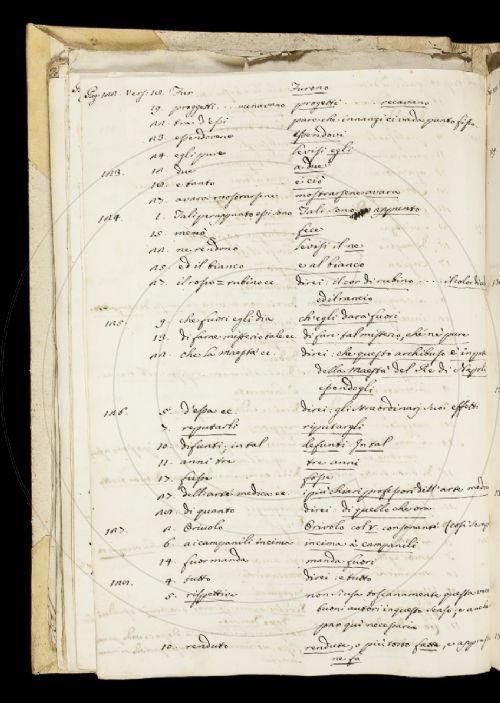 Pag: 122. Versi 12. Fur Furono
19. proggetti .... recavano progetti ..... recavano
22. tra d'essi pare che innanzi ci vada punto fisso
23. essendovene essendovi
24. egli pure levisi egli
123. 12. due a due
16. e tanto e ciò
27. avara mostrarsene mostrarsene avara
124. 1. Tali per appunto essi sono Tali sono appunto
15. meno fice
22. ne rendono levisi il ne
25. ed il bianco e al bianco
27. il rosso = rubino ec. direi: il cor di rubino ..... il color di
ed il rancio
125. 9. che fuori egli dia ch'egli darà fuori
13. di farne misterio tale ec. di fare tal misterio, chè nè pure
22. che la Maestà ec. direi: che questo archibuso è in
della Maestà del Re di Napoli
essendogli
126. 5. d'essa ec. direi: gli straordinarj suoi effetti
7. reputarli riputargli
10. difunti, in tal defunti. In tal
11. anni tre tre anni
17. fusse fosse
27. dell'arte medica ec. i più chiari professori dell'arte medica
28. di quanto direi: di quello che ora
127. 2. Orivolo Orivolo col v consonante
6. ai campanili incima incima a' campanili
14. fuor manda manda fuori
128. 4. tutto direi: e tutto
5. rispettive non si usa toscanamente questa voce
buoni autori in questo senso; e anche
par qui necessaria
10. renduto rendute, o più tosto fatte, e appresso
ne fa